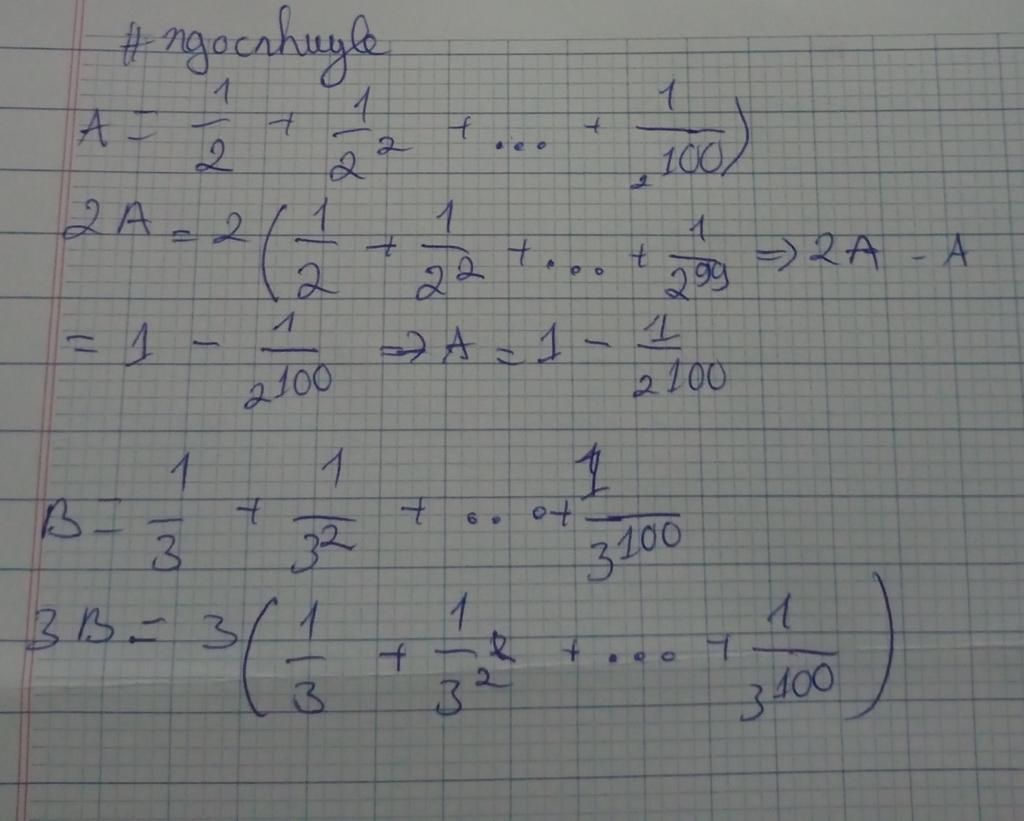 #ngocnhuyle
A = 1/2 + 1/2^2 + ... + 1/2^100)
2A = 2(1/2 + 1/2^2 + .... + 1/2^99 => 2A - A
= 1 - 1/2^100 => A = 1 - 1/2^100
B = 1/3 + 1/3^2 + ... + 1/3^100
3B = 3(1/3 + 1/3^2 + .... + 1/3^100)